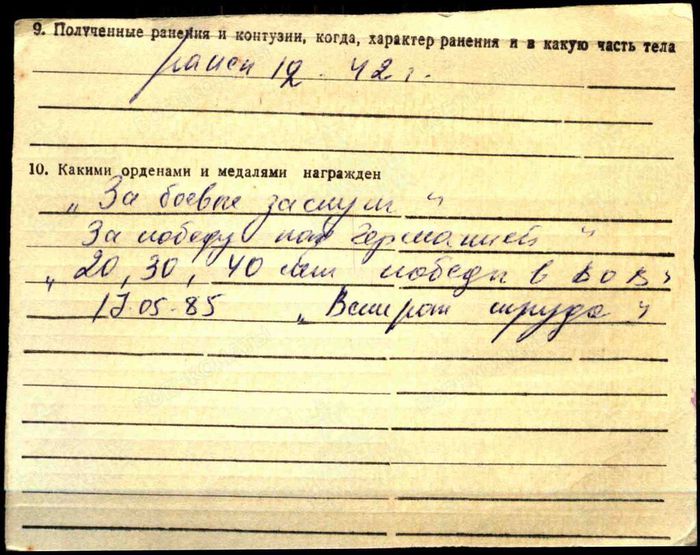 9. Полученные ранения и контузии, когда, характер ранения и в какую часть тела
ранен 12. 42 г.
10. Какими орденами и медалями награжден
„За боевые заслуги"
За победу над Германией"
„20, 30, 40 лет победы в ВОВ"
17.05.85 „Ветеран труда"